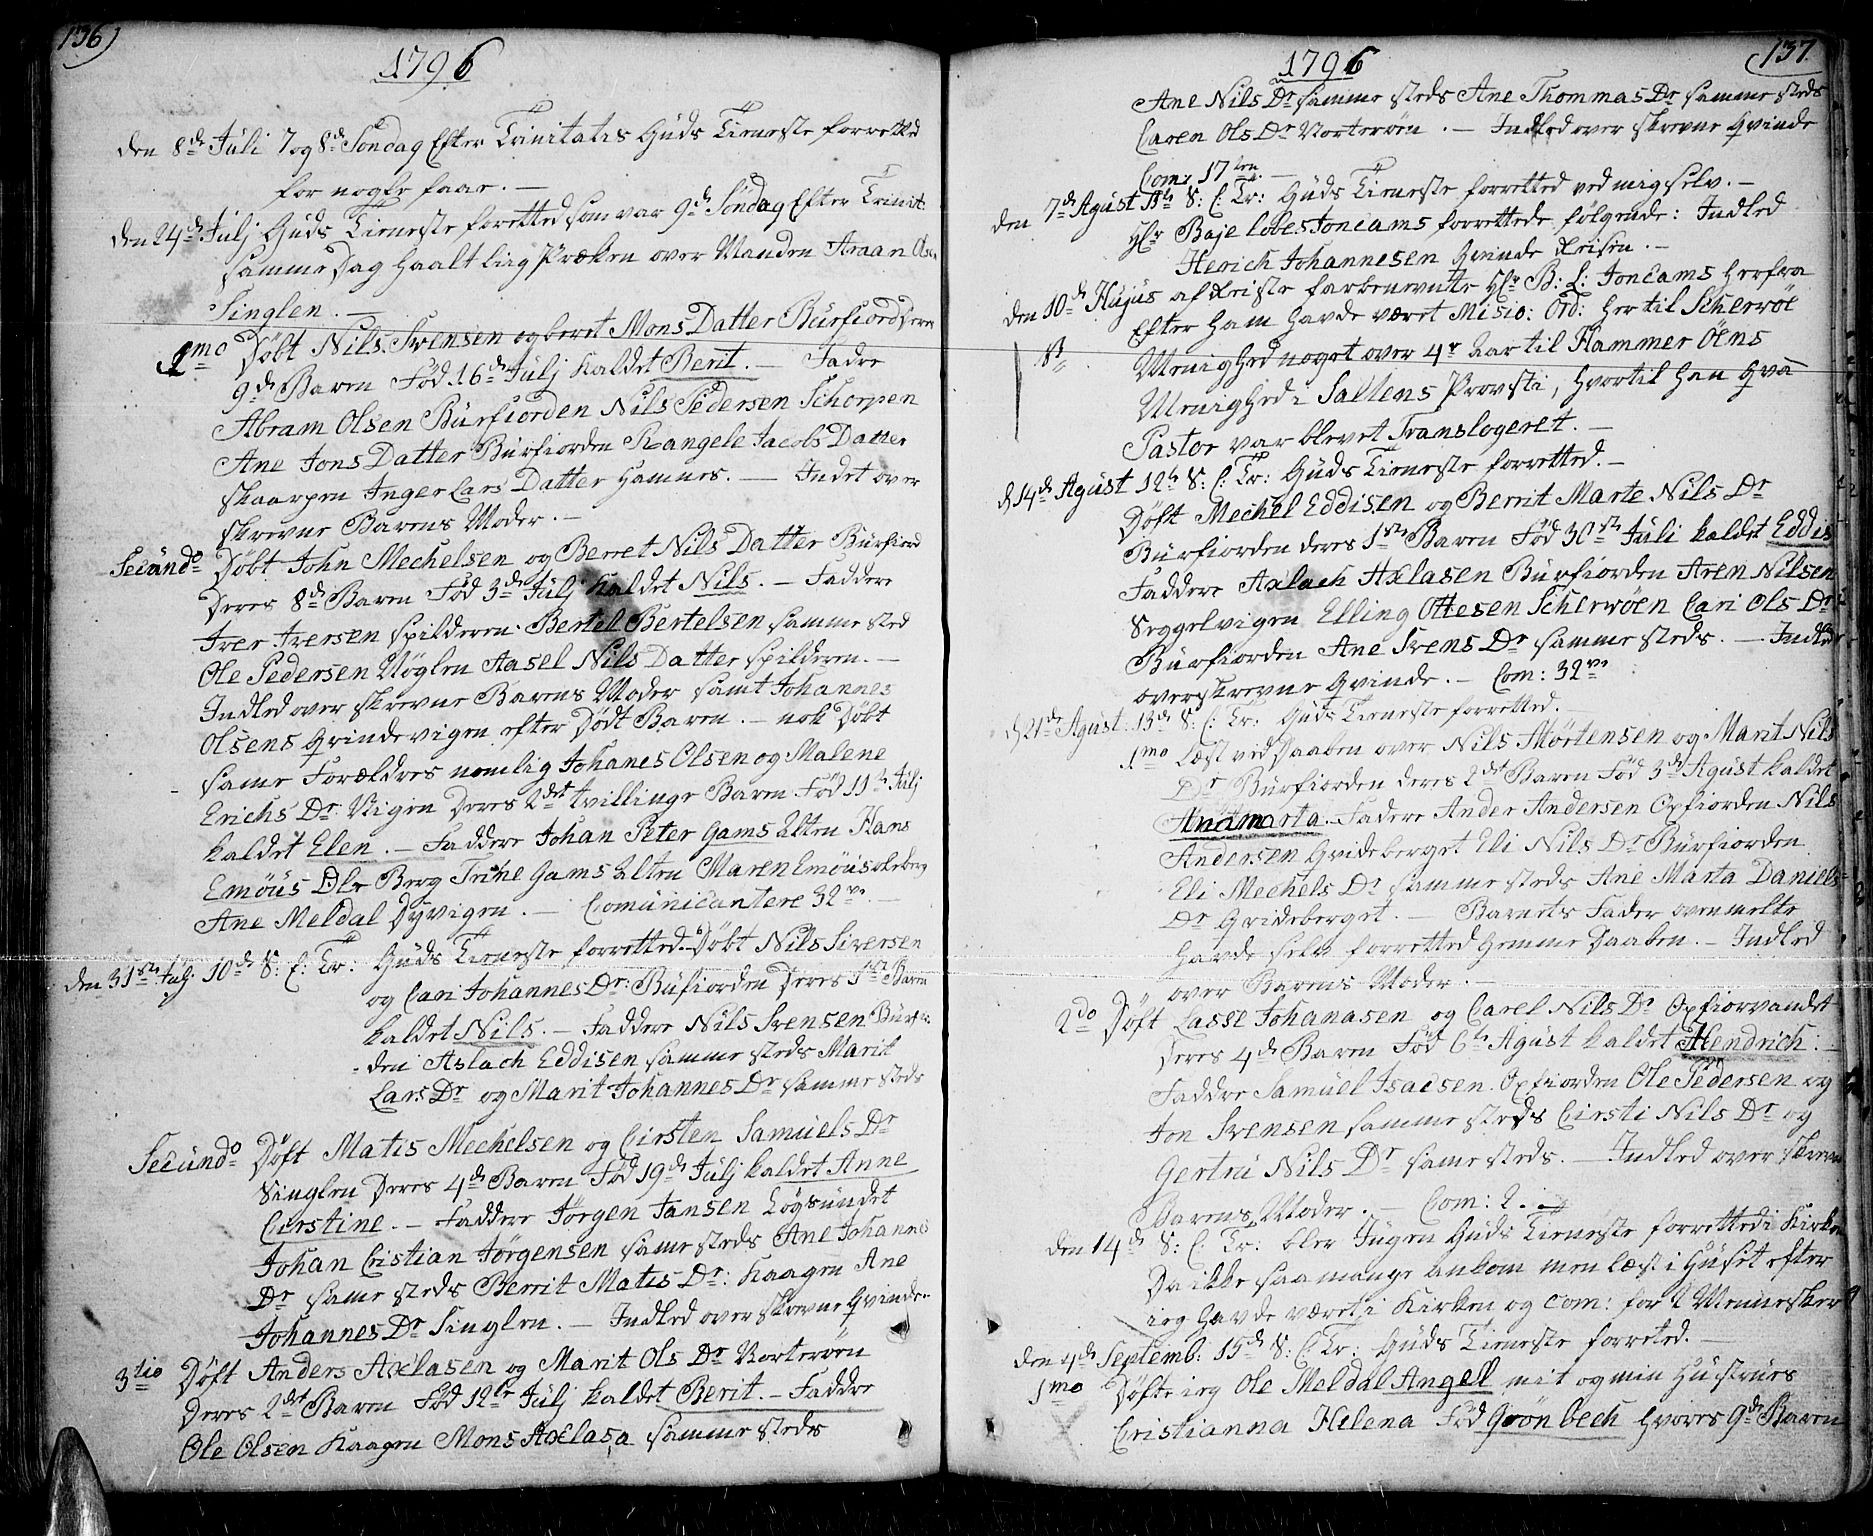 136)
1796
den 8de Juli 7 og 8de Söndag Efter Trinitatis Guds Tieneste forretted
for nogle faae. —
den 24de Julj Guds Tieneste foretted som var 9de Söndag Efter Trinit:
samme Dag haalt Præken over Manden
Singlen. —
1mo Döbt Nils Svensen og beret Mons Datter Burfiord Deres
9de Baren Föd 16de Julj kaldet Berit. — Fadre
Abram Olsen Burfiorden Nils Pedersen Schorpen
Ane Jons Datter Burfiorden Rangele Jacobs Datter
skaarpen Inger Lars Datter Hamnes. — Indet over
skrevne Barens Moder. —
Secundo Döbt John Mechelsen og Berret Nils Datter Burfiord
Deres 8de Baren Föd 3de Julj kaldet Nils. — Faddere
Iver Iversen spilderen. Bertel Bertelsen samme sted
Ole Pedersen Aasel Nils Datter spilderen. —
Indled over skrevne Barens Moder samt Johannes
Olsens Qvinde vigen efter Dödt Baren. — nok Döbt
same Forældres nemlig Johanes Olsen og Malene
Erichs Dr: Vigen Deres 2det tvillinge Baren Föd 11te Julj
kaldet Elen. — Faddere Johan Peter Gams Alten Hans
Emöus Ole Berg Trine Gams Alten Maren Emöus
Ane Meldal Dyvigen. — Comunicantere 32
den 31ste Julj 10de S: E: Tr: Guds Tieneste forretted. Döbt Nils Siversen
og Cari Johannes Dr: Bufiorden Deres 1ste Baren
kaldet Nils. — Faddere Nils Svensen Burfi:
den Aslach Eddisen samme steds Marit
Lars Dr og Marit Johannes Dr samme steds
Secundo Döft Matis Mechelsen og Cirsten Samuels Dr
Singlen Deres 4de Baren Föd 19de Julj kaldet Anne
Cirstine. — Faddere Jörgen Jansen Lögsundet
Johan Cristian Jörgensen same steds Ane Johannes
Dr same steds Berrit Matis Dr: Kaagen Ane
Johannes Dr Singlen. — Indled over skrevne Qvinde.
3tio Döft Anders Axlasen og Marit Ols Dr Vorteröen
Deres 2det Baren Föd 12te Julj kaldet Berit. — Faddre
Ole Olsen Kaagen Mons Axlasa samme steds
137
1796
Ane Nils Dr samme steds Ane Thommas Dr samme steds
Caren Ols Dr Vorteröen. — Indled over skrevne Qvinde
Com: 17ten —
den 7de Agust 11te S: E: Tr: Guds Tieneste forretted ved mig selv. —
Hr Baje Löbes Joncams forrettede fölgende: Indled
Herich Johannesen Qvinde Reisen. —
den 10de Hujus af Reiste Hr B: L: Joncams herfra
Efter Ham havde været Misio: Ord: her til Scherröe
Menighed noget over 4r Aar til Hammer Öens
Menighed i Saltens Provsti, hvortil han qva
Pastor var blevet Translogeret. —
d 14de Agust 12te S: E: Tr: Guds Tieneste forretted. —
Döft Mechel Eddisen og Berrit Marte Nils Dr
Burfiorden deres 1ste Baren Föd 30ste Juli kaldet Eddis
Faddere Axlach Axlasen Burfiorden Aren Nilsen
Seggelvigen Elling Ottesen Scherwöen Cari Ols Dr
Burfiorden Ane Svens Dr samme steds. — Indled
overskrevne Qvinde. — Com: 32
d 21de Agust. 13de S: E: Tr: Guds Tieneste forretted.
1mo Læst ved Daaben over Nils Mörtensen og Marit Nils
Dr Burfiorden deres 2det Baren Föd 3de Agust kaldet
Anamarta. Fadere Ander Andersen Oxfiorden Nils
Andersen Qvideberget Eli Nils Dr Burfiorden
Eli Mechels Dr samme steds Ane Marta Daniels
Dr Qvideberget. — Barnets Fader ovenmelte
Havde selv forretted Hemme Daaben. — Indled
over Barens Moder. —
2do Döft Lasse Johanasen og Carel Nils Dr Oxfiorvandet
Deres 4de Baren Föd 6te Agust kaldet Hendrich. —
Faddre Samuel Isacsen Oxfiorden Ole Pedersen og
Jon Svensen samme steds Cirsti Nils Dr og
Gertru Nils Dr same steds. — Indled over skrevne
Barens Moder. — Com: 2. —
den 14de S: E: Tr: blev Ingen Guds Tieneste forretted i Kirken
Da ikke saa mange ankom men læst i Huset efter
ieg havde været i Kirken og Com: for 2 Mennesker
den 4de Septemb: 15de S: E: Tr: Guds Tieneste forreted. —
1mo Döfte ieg Ole Meldal Angell mit og min Hustrues
Cristianna Helena Föd Grönbech hvores 9de Baren